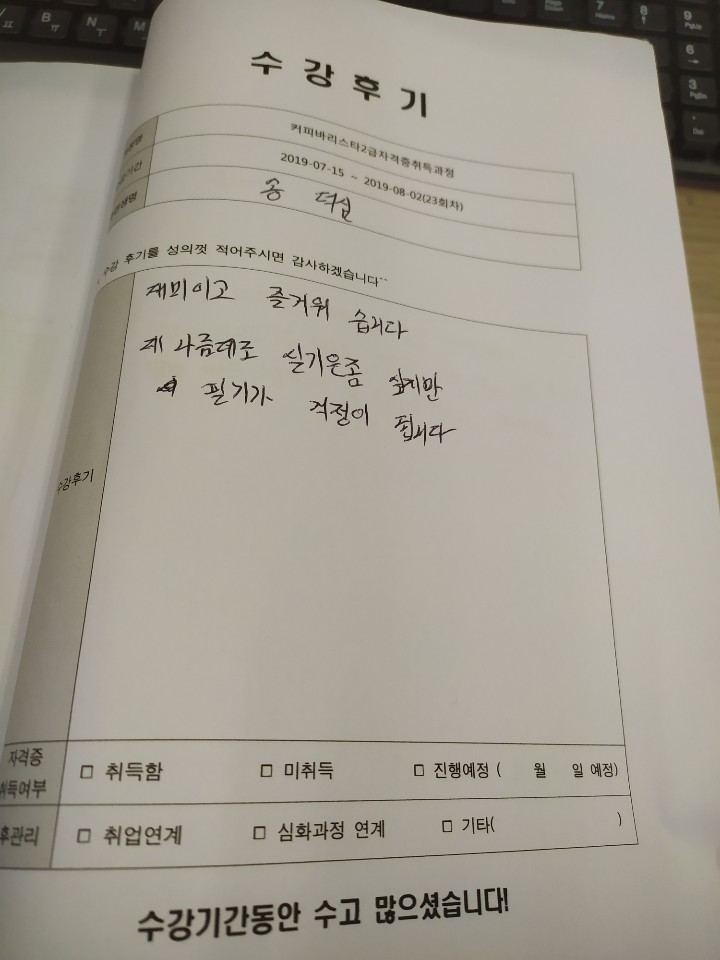 수강후기
커피바리스타2급자격증취득과정
기간
2019-07-15 ~ 2019-08-02(23회차)
생명
송 덕심
수강 후기를 성의껏 적어주시면 감사하겠습니다^^
재미이고 즐거워 습니다
제 나름데로 실기은좀 쉽지만
필기가 걱정이 됩니다
수강후기
자격증
취득여부
□ 취득함 □ 미취득 □ 진행예정 ( 월 일 예정)
후관리
□ 취업연계 □ 심화과정 연계 □ 기타( )
수강기간동안 수고 많으셨습니다!